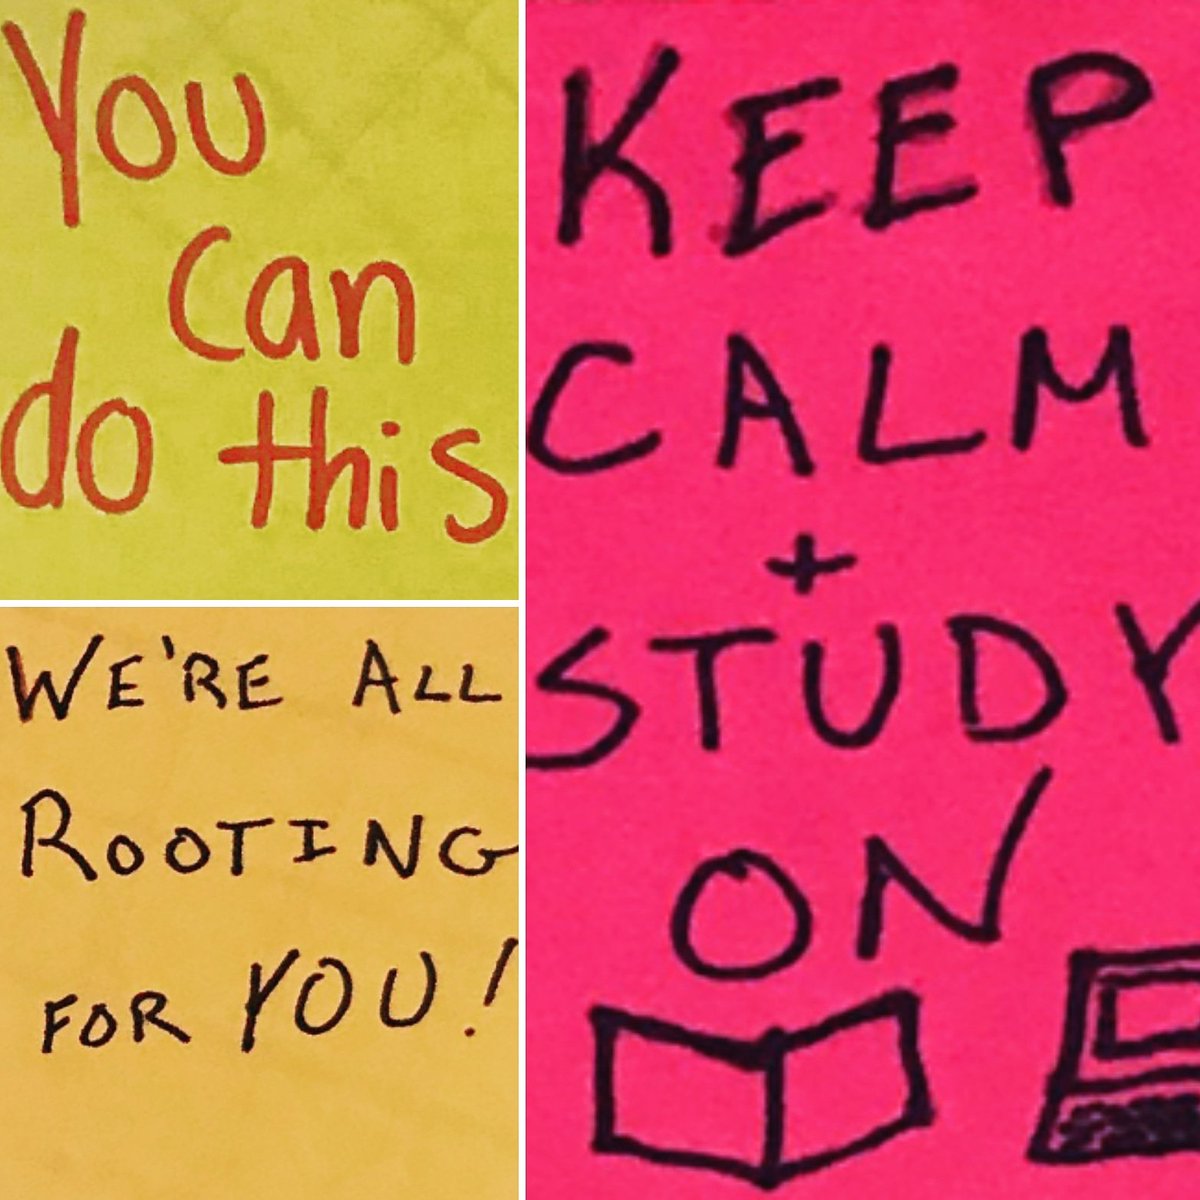 You
can
do this
WE'RE ALL
ROOTING
FOR YOU!
KEEP
CALM
+
STUDY
ON